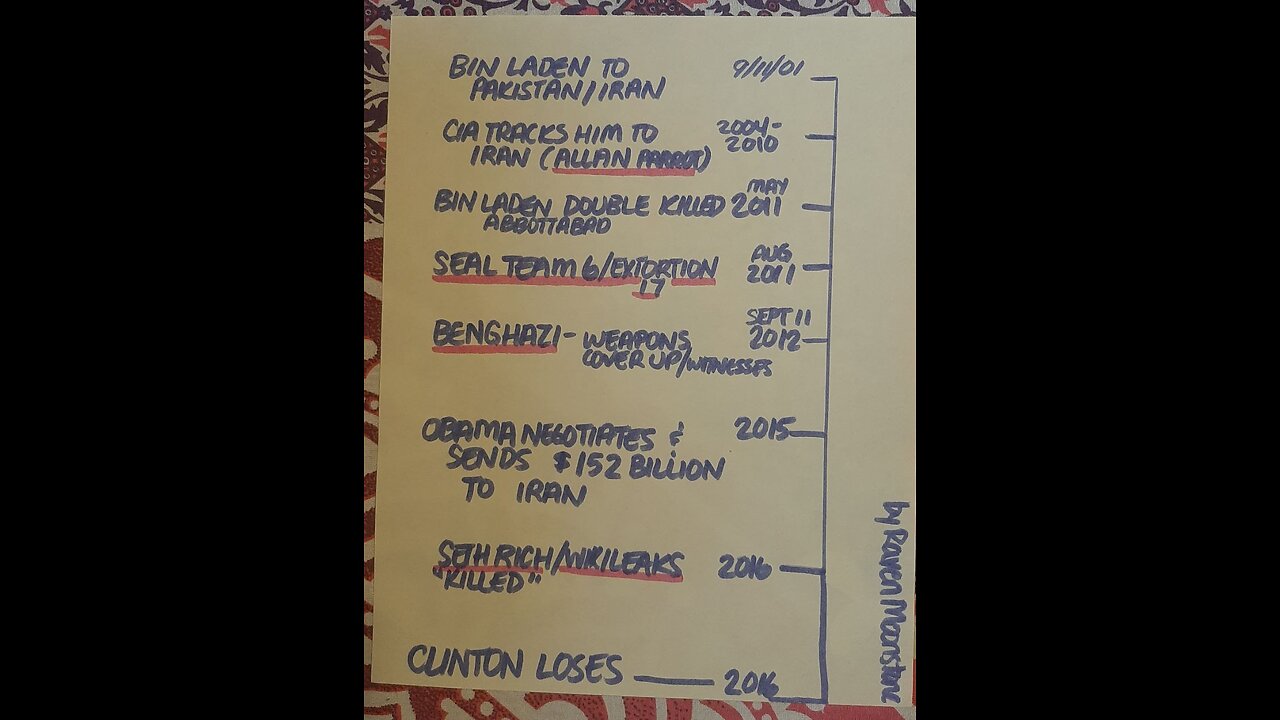 BIN LADEN TO 9/11/01
PAKISTAN/IRAN
CIA TRACKS HIM TO 2004-
IRAN (ALLAN PARROT) 2010
MAY
BIN LADEN DOUBLE KILLED 2011
ABBOTTABAD
AUG
SEAL TEAM 6/EXTORTION 2011
17
SEPT 11
BENGHAZI- WEAPONS 2012
COVER UP/WITNESSES
OBAMA NEGOTIATES & 2015
SENDS $152 BILLION
TO IRAN
SETH RICH/WIKILEAKS 2016
"KILLED"
CLINTON LOSES 2016
by Raven Moonstone